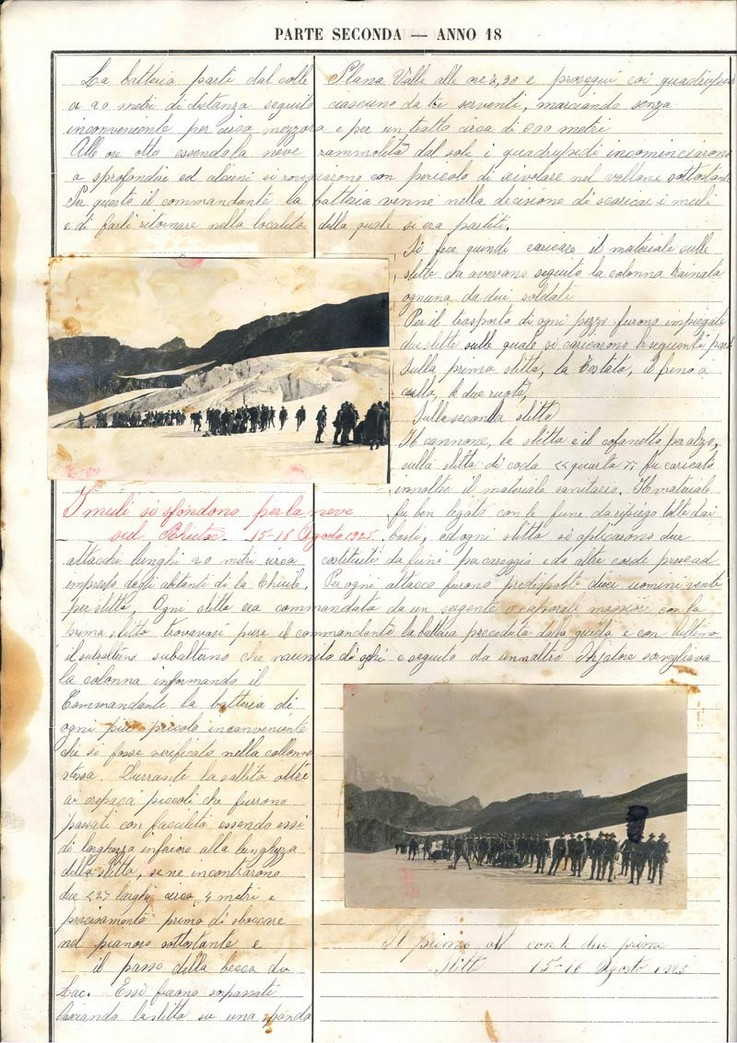 PARTE SECONDA — ANNO 18
La batteria partì dal colle Plana Valle alle ore 2,30 e proseguì coi quadrupedi
a 20 metri di distanza seguito ciascuno da tre serventi, marciando senza
inconveniente per circa mezzora e per un tratto circa di 800 metri
Alle ore otto essendo la neve rammolita dal sole i quadrupedi incominciarono
a sprofondar ed alcuni si rovesciarono con pericolo di scivolare nel vallone sottostante
Per questo il commandante la batteria venne nella decisione di scaricar i muli
e di farli ritornare nella località dalla quale si era partiti.
Si fece quindi caricare il materiale sulle
slitte da avevano seguito la colonna trainata
ognuna da due soldati
Per il trasporto di ogni pezzo furono impiegate
due slitte sulle quale si caricarono le seguenti parti
Sulla prima slitta, la testata, il freno a
culla, le due ruote,
Sulla seconda slitta
Il cannone, la slitta e il cofanetto paralzo,
sulla slitta di coda << quarta >> fu caricato
innoltre il materiale sanitario. Il materiale
fu ben legato con le fune da ripiego tolte dai
basti, ad ogni slitta si applicarono due
I muli si sfondono per la neve
sul 15-16 Agosto 1925
attacchi lunghi 20 metri circa costituiti da funi da altre corde
impresso dagli abitanti di la Thuile. Per ogni attacco furono predisposti dieci uomini venti
per slitta. Ogni slitta era commandata da un sergente o caporale maggiore con la
prima slitta trovavasi pure il commandante la batteria preceduta dalla guida e con l'ultima
il subalterno che raunito di sghi e seguito da un altro skjatore sorvegliava
la colonna informando il
Commandante la batteria di
ogni più piccolo inconveniente
che si fosse verificato nella collonna
stessa. Durrante la salita oltre
ai crepacci piccoli che furrono
passati con faccilità essendo essi
di larghezza inferiore alla lunghezza
della slitta, se ne incontrarono
due larghi circa 4 metri e
precisamente primo di sboccare
nel pianoro sottostante e
il passo della becca du
Lac. Essi furono sorpassati
lanciando la slitta su una sponda
Il primo att con le due prime
slitte 15-16 Agosto 1925